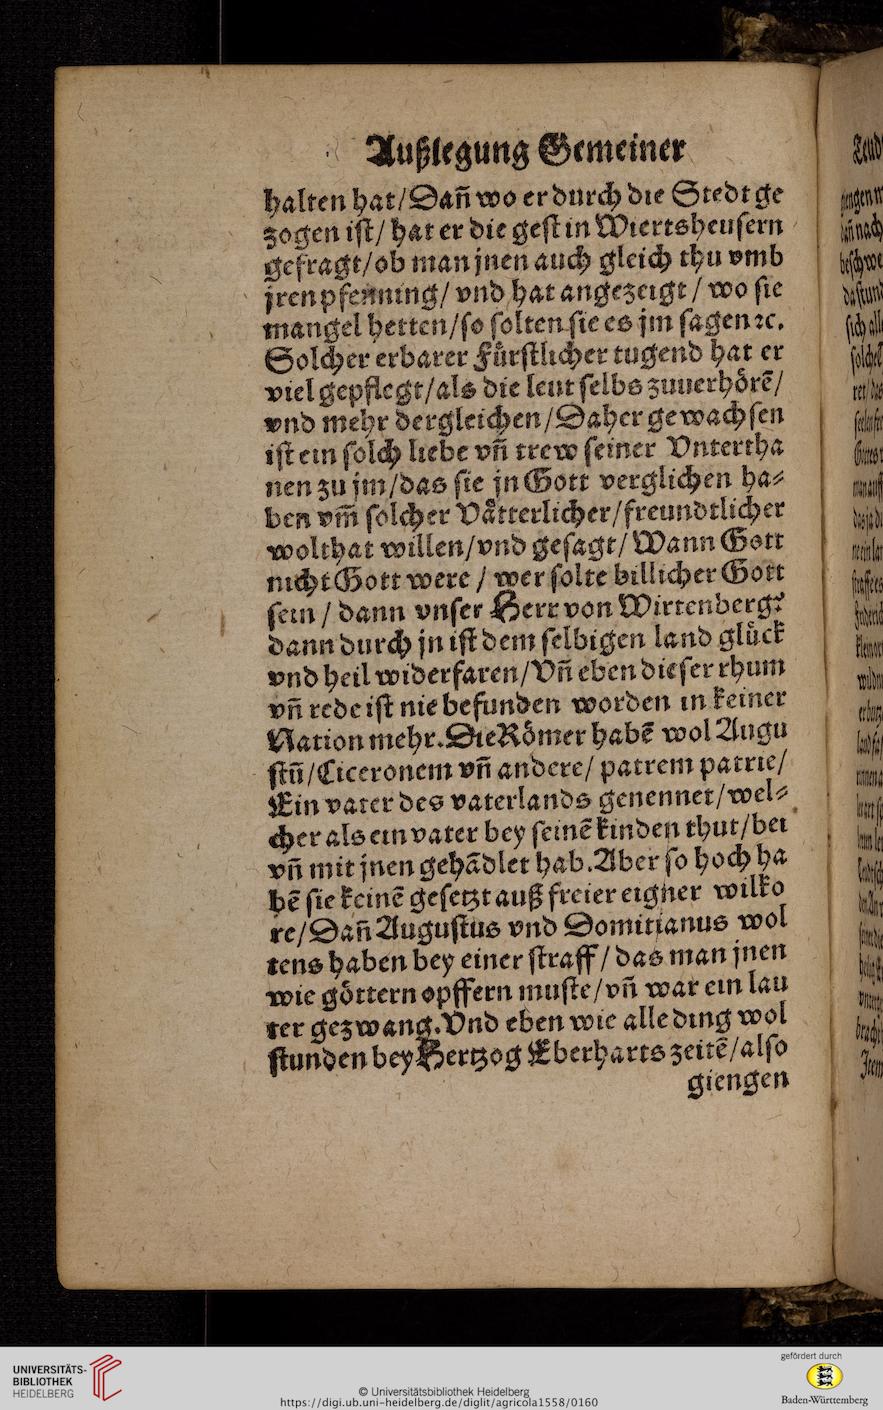 Außlegung Gemeiner
halten hat/Dañ wo er durch die Stedt ge
zogen iſt/ hat er die geſt in Wiertsheuſern
gefragt/ob man jnen auch gleich thu vmb
jren pfenning/ vnd hat angezeigt/ wo ſie
mangel hetten/ſo ſolten ſie es jm ſagen ꝛc.
Solcher erbarer Fuͤrſtlicher tugend hat er
viel gepflegt/als die leut ſelbs zuuerhoͤrẽ/
vnd mehr dergleichen/Daher gewachſen
iſt ein ſolch liebe vñ trew ſeiner Vntertha
nen zu jm/das ſie jn Gott verglichen ha⸗
ben vm̃ ſolcher Vaͤtterlicher/freundtlicher
wolthat willen/vnd geſagt/ Wann Gott
nicht Gott were / wer ſolte billicher Gott
ſein / dann vnſer Herr von Wirtenberg?
dann durch jn iſt dem ſelbigen land gluͤck
vnd heil widerfaren/Vñ eben dieſer rhum
vñ rede iſt nie befunden worden in keiner
Nation mehr. Die Roͤmer habẽ wol Augu
ſtũ/Ciceronem vñ andere/ patrem patrie/
Ein vater des vaterlands genennet/wel⸗
cher als ein vater bey ſeinẽ kinden thut/bei
vñ mit jnen gehãdlet hab. Aber ſo hoch ha
bẽ ſie keinẽ geſetzt auß freier eigner wilko
re/Dañ Auguſtus vnd Domitianus wol
tens haben bey einer ſtraff/ das man jnen
wie goͤttern opffern muſte/vñ war ein lau
ter gezwang. Vnd eben wie alle ding wol
ſtunden bey Hertzog Eberharts zeitẽ/alſo
giengen
UNIVERSITÄTS-
BIBLIOTHEK
HEIDELBERG
© Universitätsbibliothek Heidelberg
https://digi.ub.uni-heidelberg.de/diglit/agricola1558/0160
gefördert durch
Baden-Württemberg